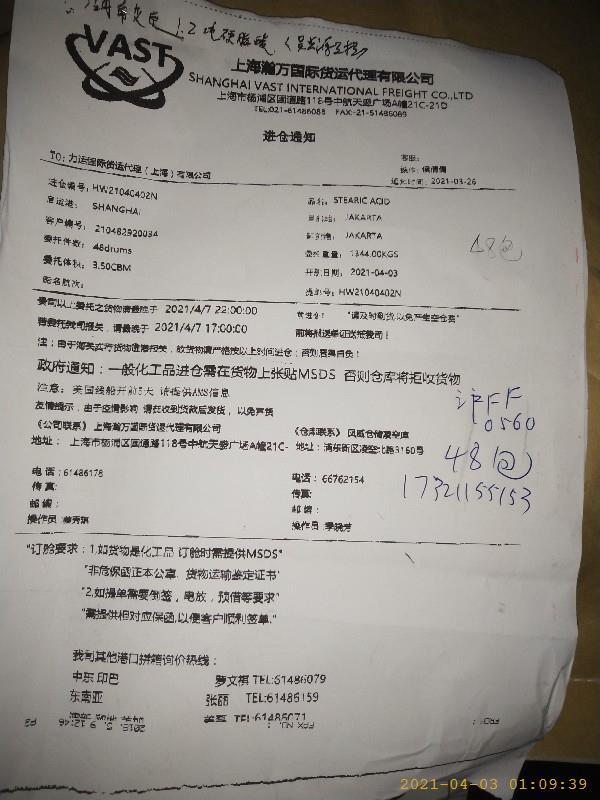 VAST
上海瀚万国际货运代理有限公司
SHANGHAI VAST INTERNATIONAL FREIGHT CO.,LTD
上海市杨浦区国通路118号中航天盛广场A幢21C-21D
TEL:021-61486088 FAX:-21-51486089
进仓通知
TO: 力运国际货运代理（上海）有限公司
客服:
操作: 侯倩倩
通知时间: 2021-03-26
进仓编号: HW21040402N
品名: STEARIC ACID
启运港: SHANGHAI
目的港: JAKARTA
客户编号: 210482920034
JAKARTA
委托件数: 48drums
委托重量: 1344.00KGS
48包
委托体积: 3.50CBM
开航日期: 2021-04-03
船名航次:
提单号: HW21040402N
贵司以上委托之货物请最晚于 2021/4/7 22:00:00
"请及时到货,以免产生空仓费"
若委托我司报关，请最晚于 2021/4/7 17:00:00
前将报送单证送抵我司！
注：由于海关实行货物进港报关，故货物请严格按以上时间进仓；否则后果自负！
政府通知：一般化工品进仓需在货物上张贴MSDS 否则仓库将拒收货物
注意: 美国线船开前5天 请提供AMS信息
沪FF
0560
友情提示：由于空情影响 请在收到货款后发货，以免弃货
《公司联系》上海瀚万国际货运代理有限公司
《仓库联系》
地址: 上海市杨浦区国通路118号中航天盛广场A幢21C-
地址: 浦东新区凌空北路3160号
48包
电话: 61486178
电话: 66762154
17321155153
传真:
传真:
邮编:
邮编:
操作员
操作员 季晓芳
"订舱要求：1.如货物是化工品 订舱时需提供MSDS"
"非危保函正本公章，货物运输鉴定证书"
"2.如提单需要倒签，电放，预借等要求"
"需提供相对应保函,以便客户顺利签单."
我司其他港口拼箱询价热线：
中东 印巴 罗文祺 TEL:61486079
东南亚 张丽 TEL:61486159
TEL:61486071
2021-04-03 01:09:39